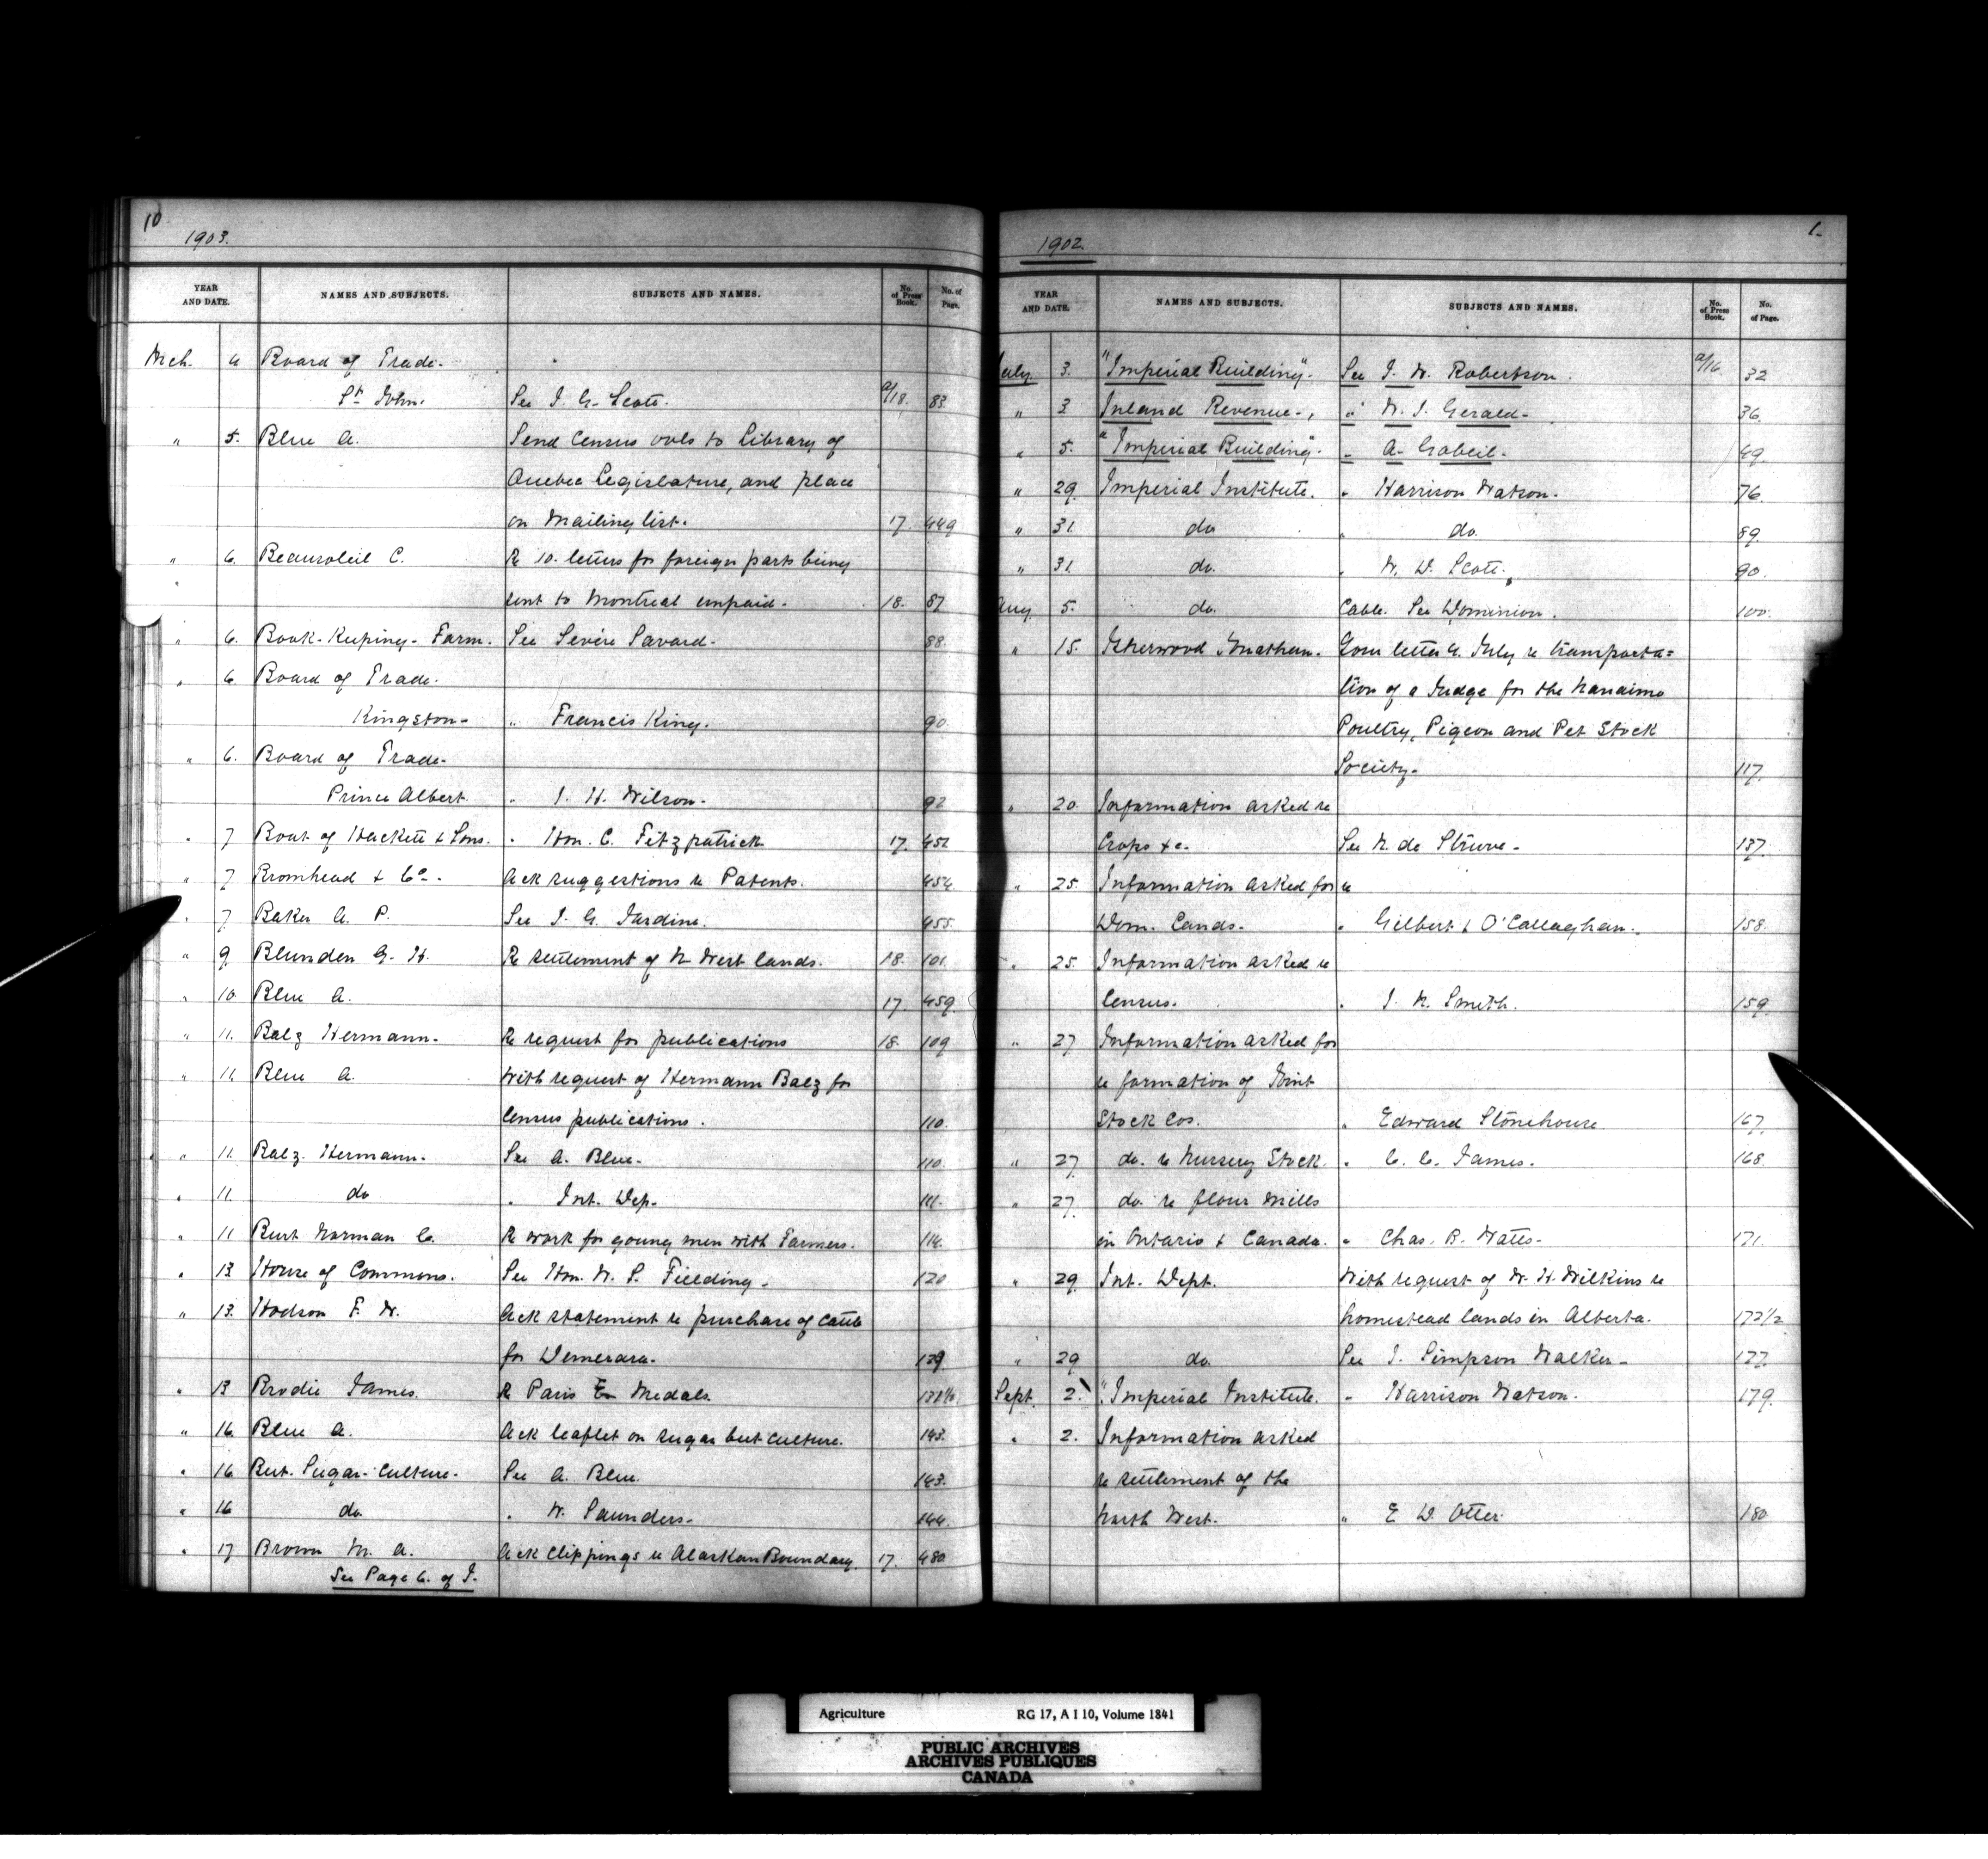 10
1903.
YEAR AND DATE. NAMES AND SUBJECTS. SUBJECTS AND NAMES. No. of Press Book. No. of Page.
Mch. 4 Board of Trade.
St John. See J. G. Scott. a/18. 83.
" 5. Blue A. Send Census vols to Library of
Quebec Legislature, and place
on Mailing list. 17. 449
" 6. Beausoleil C. Re 10. letters for foreign parts being
sent to Montreal unpaid. 18. 87
" 6. Book-Keeping- Farm. See Sevére Savard. 88.
" 6 Board of Trade.
Kingston- " Francis King. 90.
" 6. Board of Trade.
Prince Albert. " J. H. Wilson. 92
" 7 Boat of Hackett & Sons. " Hon. C. Fitzpatrick 17. 452
" 7 Bromhead & Co. Ack suggestions re Patents. 454.
" 7. Baker A. P. See J. G. Jardine. 455.
" 9. Blunden G. H. Re settlement of N West lands. 18. 101.
" 10. Blue A. 17. 459.
" 11. Balz Hermann. Re request for publications 18. 109
" 11. Blue A. With request of Hermann Balz for
Census publications. 110.
" 11. Balz. Hermann. See A. Blue. 110.
" 11. do " Int. Dep. 111.
" 11 Burt Norman C. Re work for young men with Farmers. 114.
" 13 House of Commons. See Hon. W. S. Fielding. 120
" 13. Hodson F. W. Ack statement re purchase of cattle
for Demerara. 129.
" 13 Brodie James. Re Paris Ex Medals.
" 16. Blue A. Ack leaflet on sugar beet culture. 143.
" 16 Beet. Sugar-Culture. See A. Blue. 143.
" 16 do. " W. Saunders. 144.
" 17 Brown M. A. Ack clippings re Alaskan Boundary. 17. 480
See Page 6. of J.
1.
1902.
YEAR AND DATE. NAMES AND SUBJECTS. SUBJECTS AND NAMES. No. of Press Book. No. of Page.
July. 3. "Imperial Building". See J. W. Robertson. a/16 32
" 3 Inland Revenue., " W. J. Gerald. 36.
" 5. "Imperial Building". " A. Gobeil. 49.
" 29. Imperial Institute. " Harrison Watson. 76.
" 31 do " do. 89.
" 31. do. " W. D. Scott. 90.
Aug. 5. do. Cable. See Dominion. 100.
" 15. Isherwood Jonathan. Your letter 4. July re transporta=
tion of a Judge for the Nanaimo
Poultry, Pigeon and Pet Stock
Society. 117.
" 20. Information asked re
Crops &c. See N. de Struve. 137.
" 25. Information asked for re
Dom. Lands. " Gilbert & O'Callaghan. 158.
" 25. Information asked re
Census. " J. N. Smith. 159.
" 27 Information asked for
re formation of Joint
Stock Cos. " Edward Stonehouse 167.
" 27 do. re Nursery Stock. " C. C. James. 168
" 27. do. re flour mills
in Ontario & Canada. " Chas. B. Watts. 171.
" 29. Int. Dept. With request of W. H. Wilkins re
homestead lands in Alberta. 172 1/2
" 29 do. See J. Simpson Walker. 177.
Sept. 2. "Imperial Institute. " Harrison Watson. 179.
" 2. Information asked
re settlement of the
North West. " E D. Otter. 180
Agriculture RG 17, A I 10, Volume 1841
PUBLIC ARCHIVES
ARCHIVES PUBLIQUES
CANADA